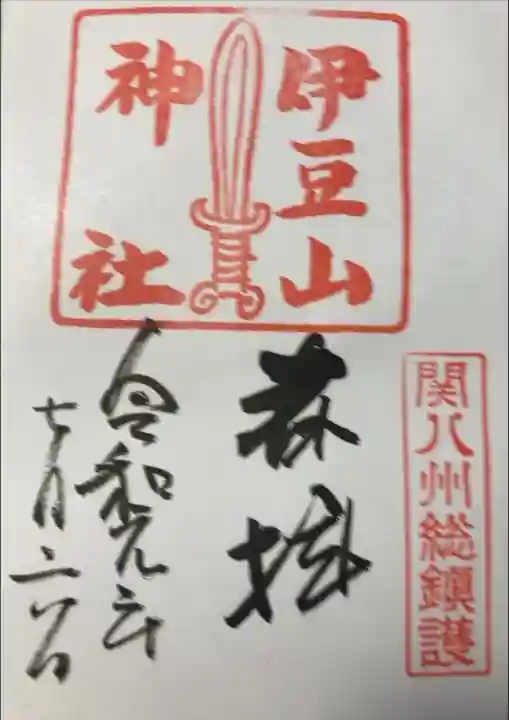 伊豆山
神社
関八州総鎮護
奉拝
令和元年
七月